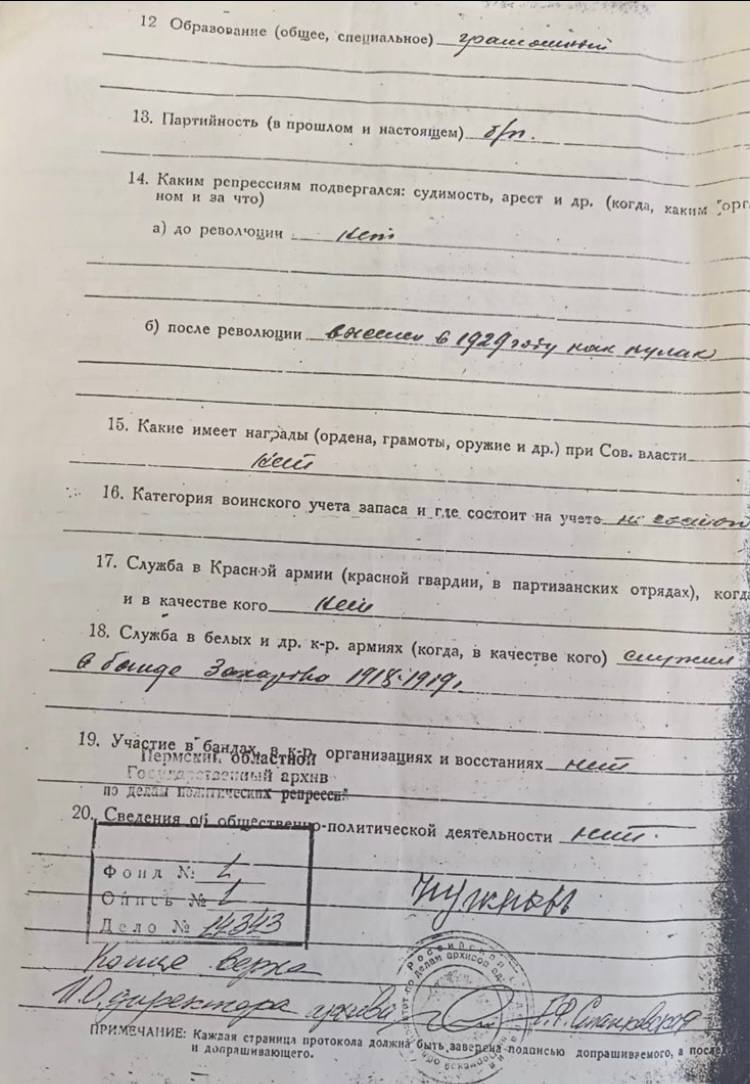 12 Образование (общее, специальное) грамотный
13. Партийность (в прошлом и настоящем) б/п.
14. Каким репрессиям подвергался: судимость, арест и др. (когда, каким орга
ном и за что)
а) до революции нет
б) после революции выслан в 1929 году как кулак
15. Какие имеет награды (ордена, грамоты, оружие и др.) при Сов. власти
нет
16. Категория воинского учета запаса и где состоит на учете не состоит
17. Служба в Красной армии (красной гвардии, в партизанских отрядах), когда
и в качестве кого нет
18. Служба в белых и др. к-р. армиях (когда, в качестве кого) служил
в банде 1918-1919г.
19. Участие в бандах, в к-р. организациях и восстаниях нет
Пермский областной
Государственный архив
по делам политических репрессий
20. Сведения об общественно-политической деятельности нет.
Фонд № 1
Опись № 1
Дело № 14343
Копия верна
И.О. директора архива
ПРИМЕЧАНИЕ: Каждая страница протокола должна быть заверена подписью допрашиваемого, а после
и допрашивающего.